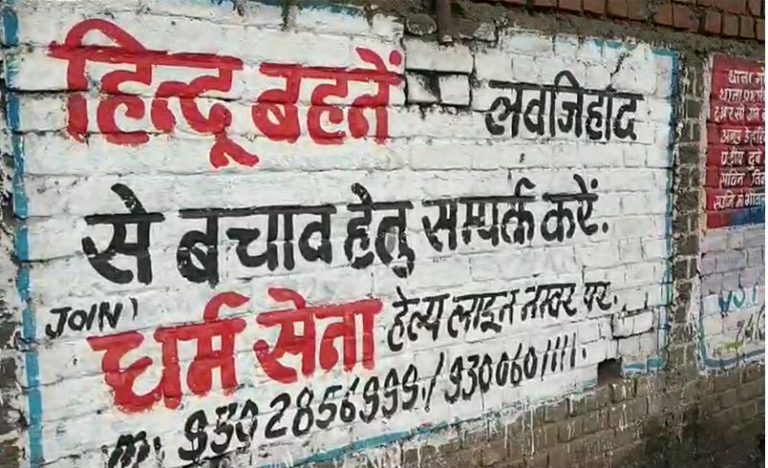 हिन्दू बहनें लवजिहाद
से बचाव हेतु सम्पर्क करें.
JOIN)
धर्म सेना हेल्प लाइन नम्बर पर.
m: 9302856999./9300601111.
थाना